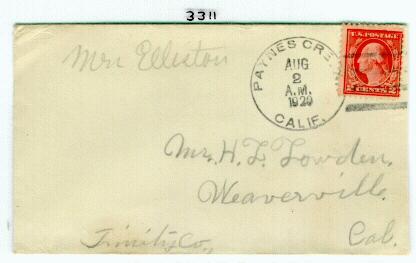 3311
Mrs Elliston
PAYNES CR
AUG
2
A.M.
1920
CALIF.
U.S. POSTAGE
2 CENTS 2
Mr. H. L. Lowden,
Weaverville.
Trinity Co., Cal.